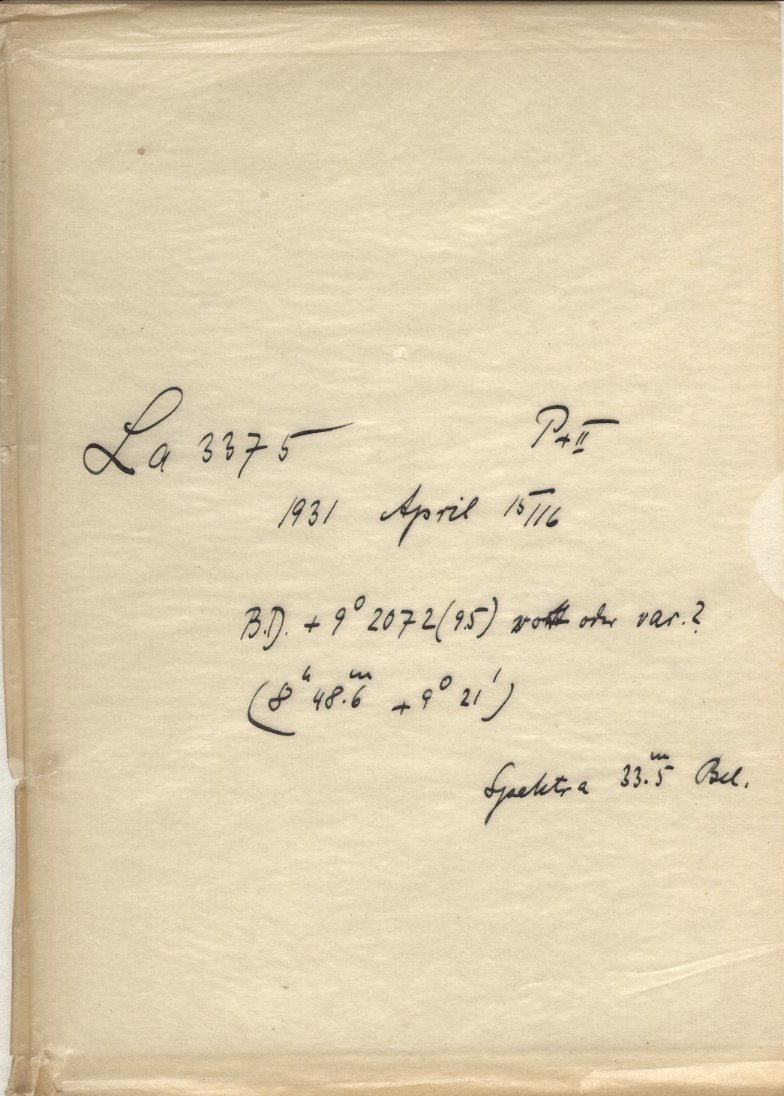 La 3375 P+II
1931 April 15/16
B.D. + 9° 2072 (9.5) rot oder var.?
(8ʰ 48.6ᵐ + 9° 21')
Spektra 33.5ᵐ Bel.